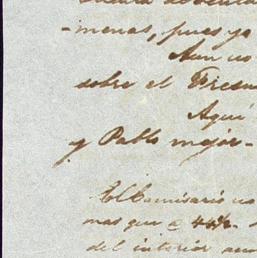 -menos, pues yo
Aun no
sobre el
Aquí
y Pablo mejor-
El Comisario no
mas que a 44½-
del interior